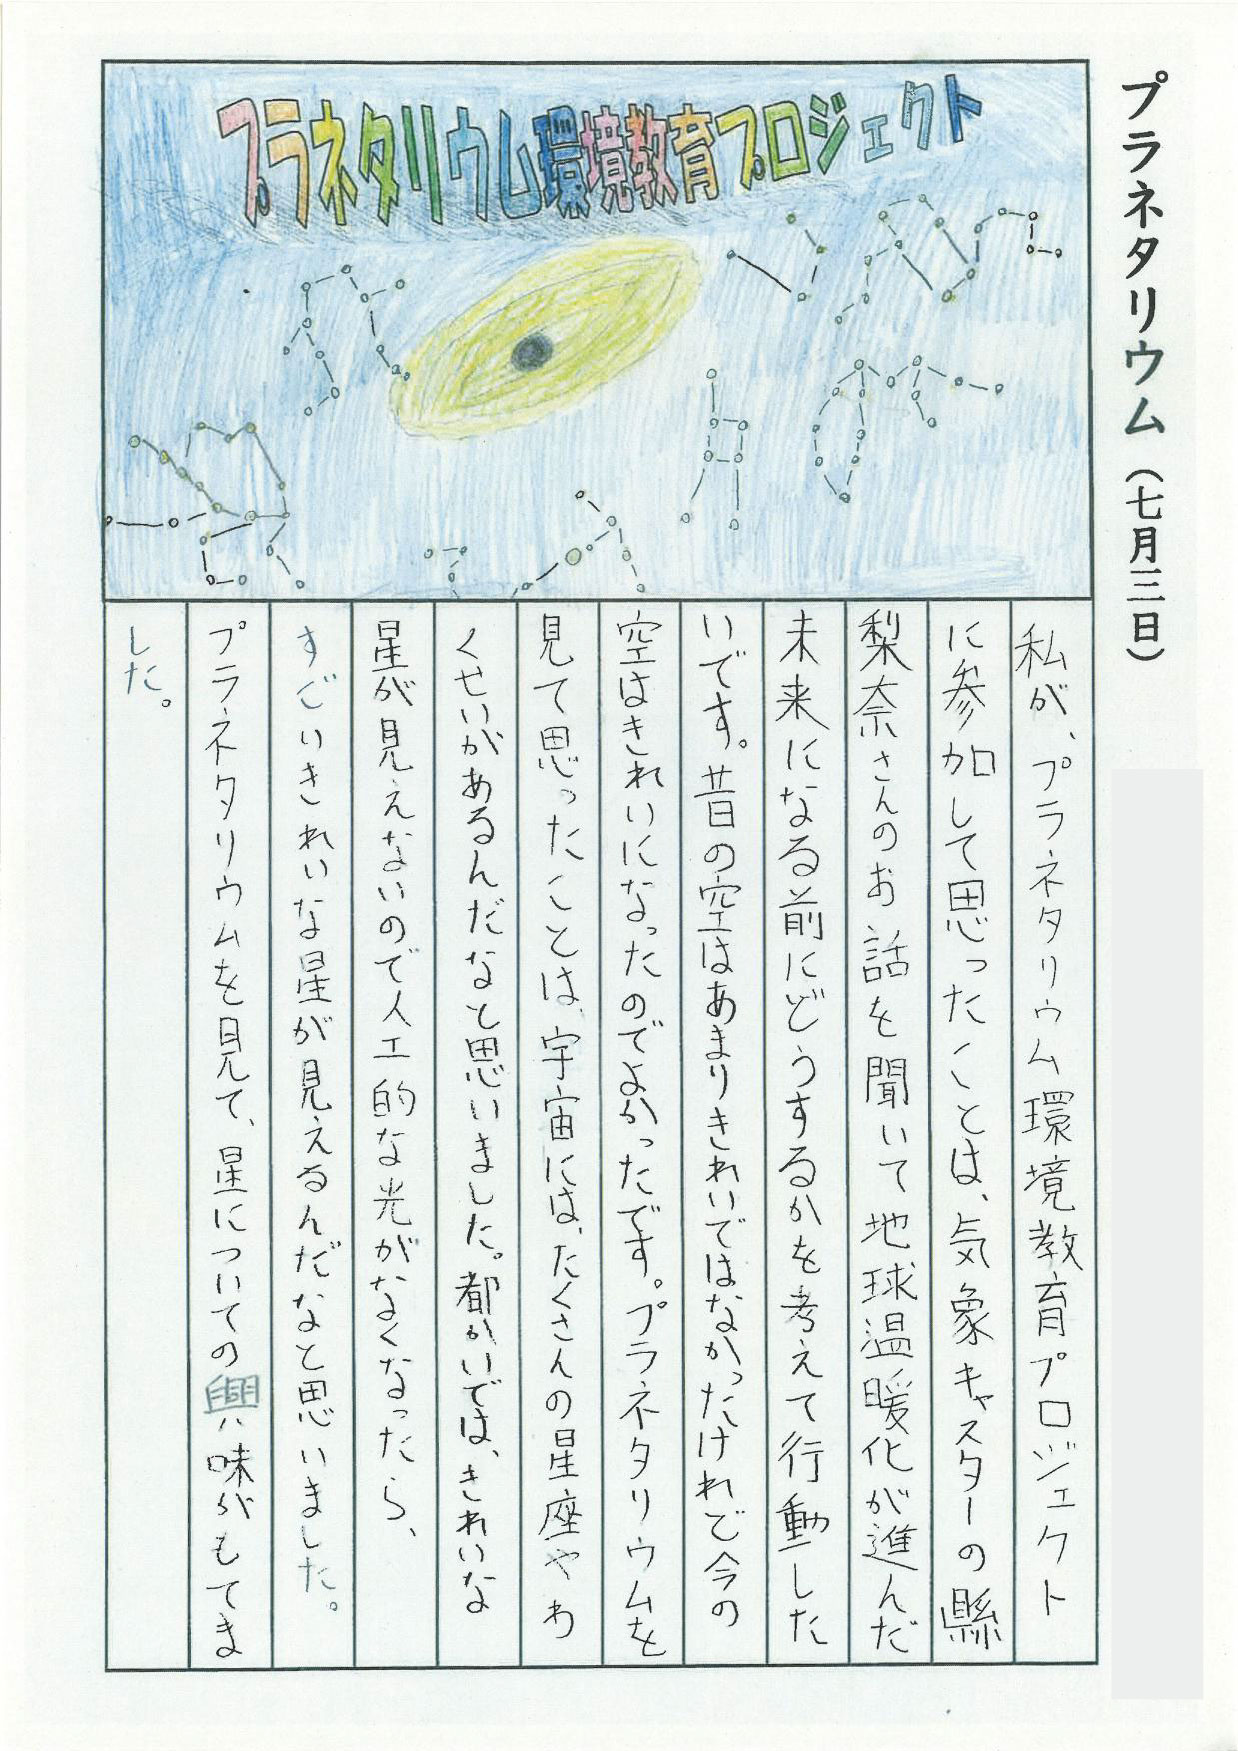 プラネタリウム（七月三日）
プラネタリウム環境教育プロジェクト
私が、プラネタリウム環境教育プロジェクト
に参加して思ったことは、気象キャスターの縣
梨奈さんのお話を聞いて地球温暖化が進んだ
未来になる前にどうするかを考えて行動した
いです。昔の空はあまりきれいではなかったけれど今の
空はきれいになったのでよかったです。プラネタリウムを
見て思ったことは、宇宙には、たくさんの星座やわ
くせいがあるんだなと思いました。都かいでは、きれいな
星が見えないので人工的な光がなくなったら、
すごいきれいな星が見えるんだなと思いました。
プラネタリウムを見て、星についての興味がもてま
した。